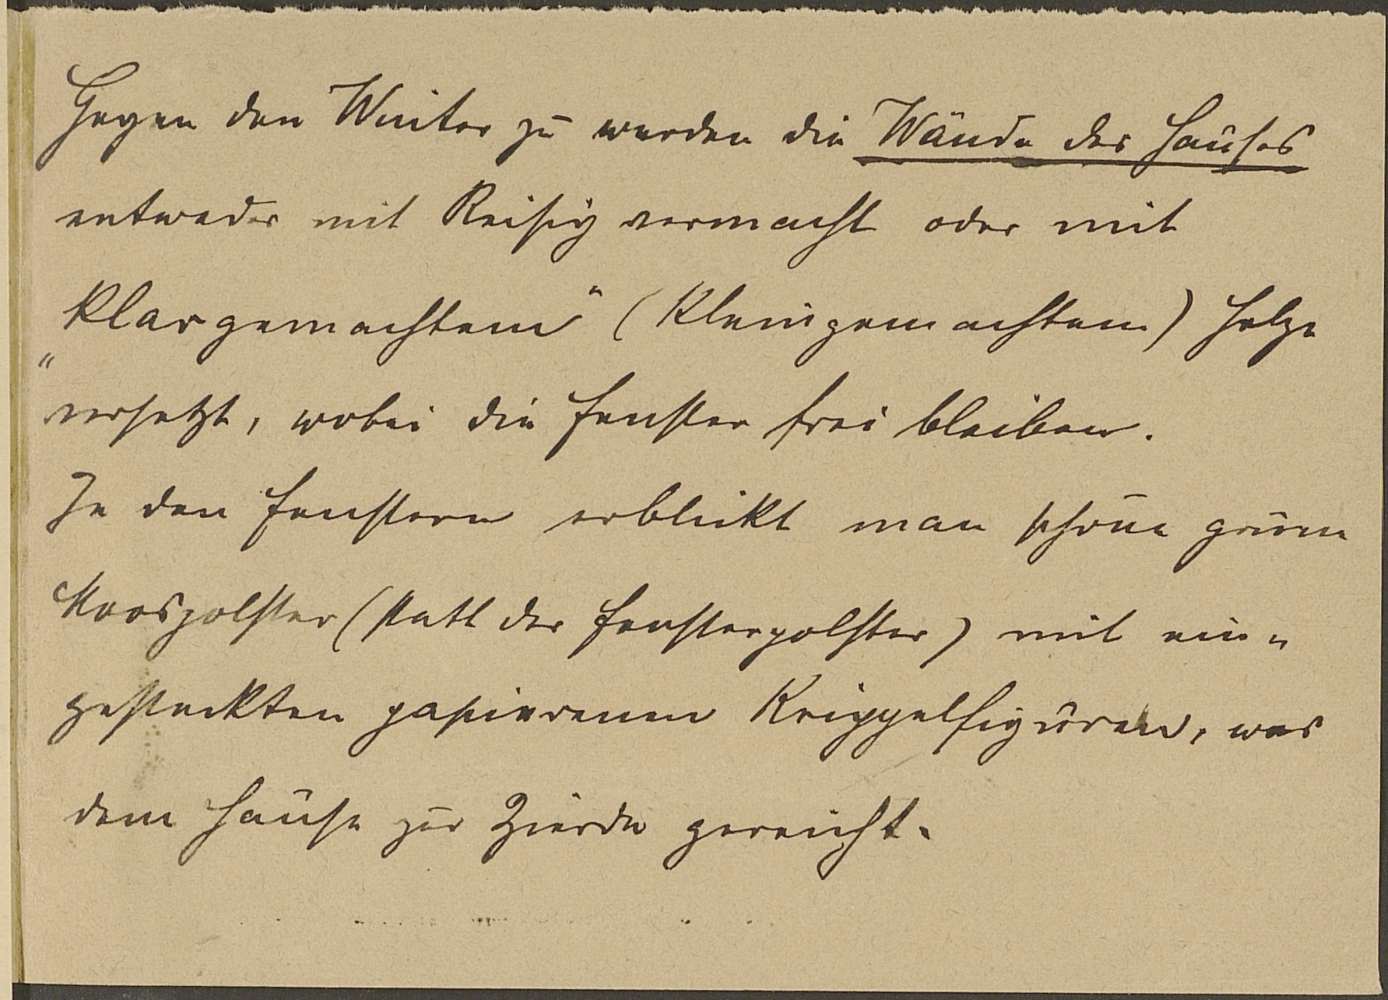 Gegen den Winter zu werden die Wände des Hauses
entweder mit Reisig vermacht oder mit
„klargemachtem“ (kleingemachtem) Holze
versetzt, wobei die Fenster frei bleiben.
In den Fenstern erblickt man schöne grüne
Moospolster (statt der Fensterpolster) mit ein-
gesteckten papierenen Krippelfiguren, was
dem Hause zur Zierde gereicht.